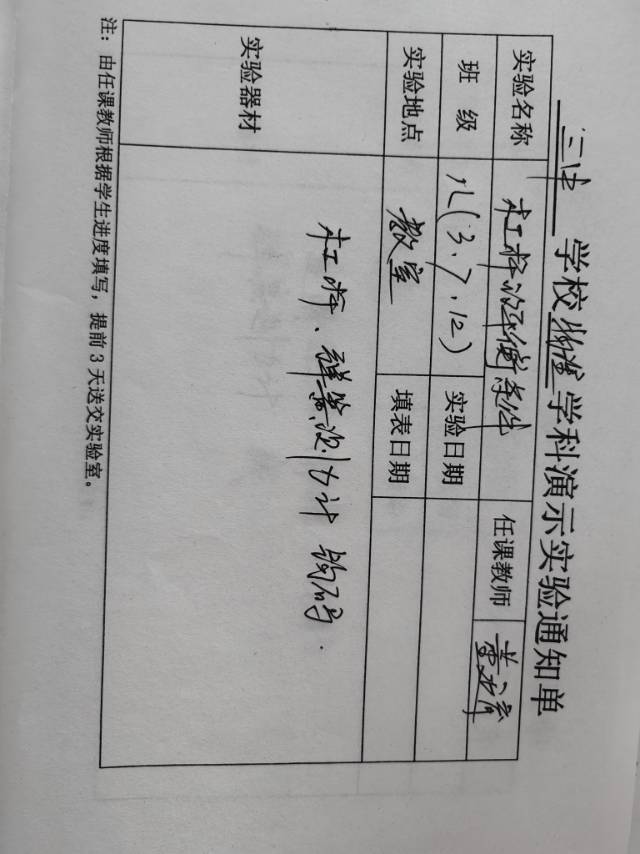 三中 学校 物理 学科演示实验通知单
实验名称 杠杆的平衡条件 任课教师
班 级 八(3、7、12) 实验日期
实验地点 教室 填表日期
实验器材 杠杆、弹簧测力计 钩码.
注：由任课教师根据学生进度填写，提前3天送交实验室。